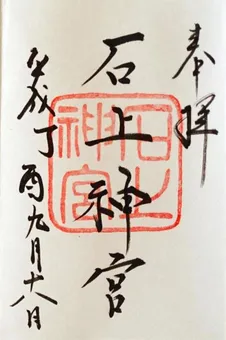 奉拝
石上神宮
平成丁酉九月十八日
石上神宮